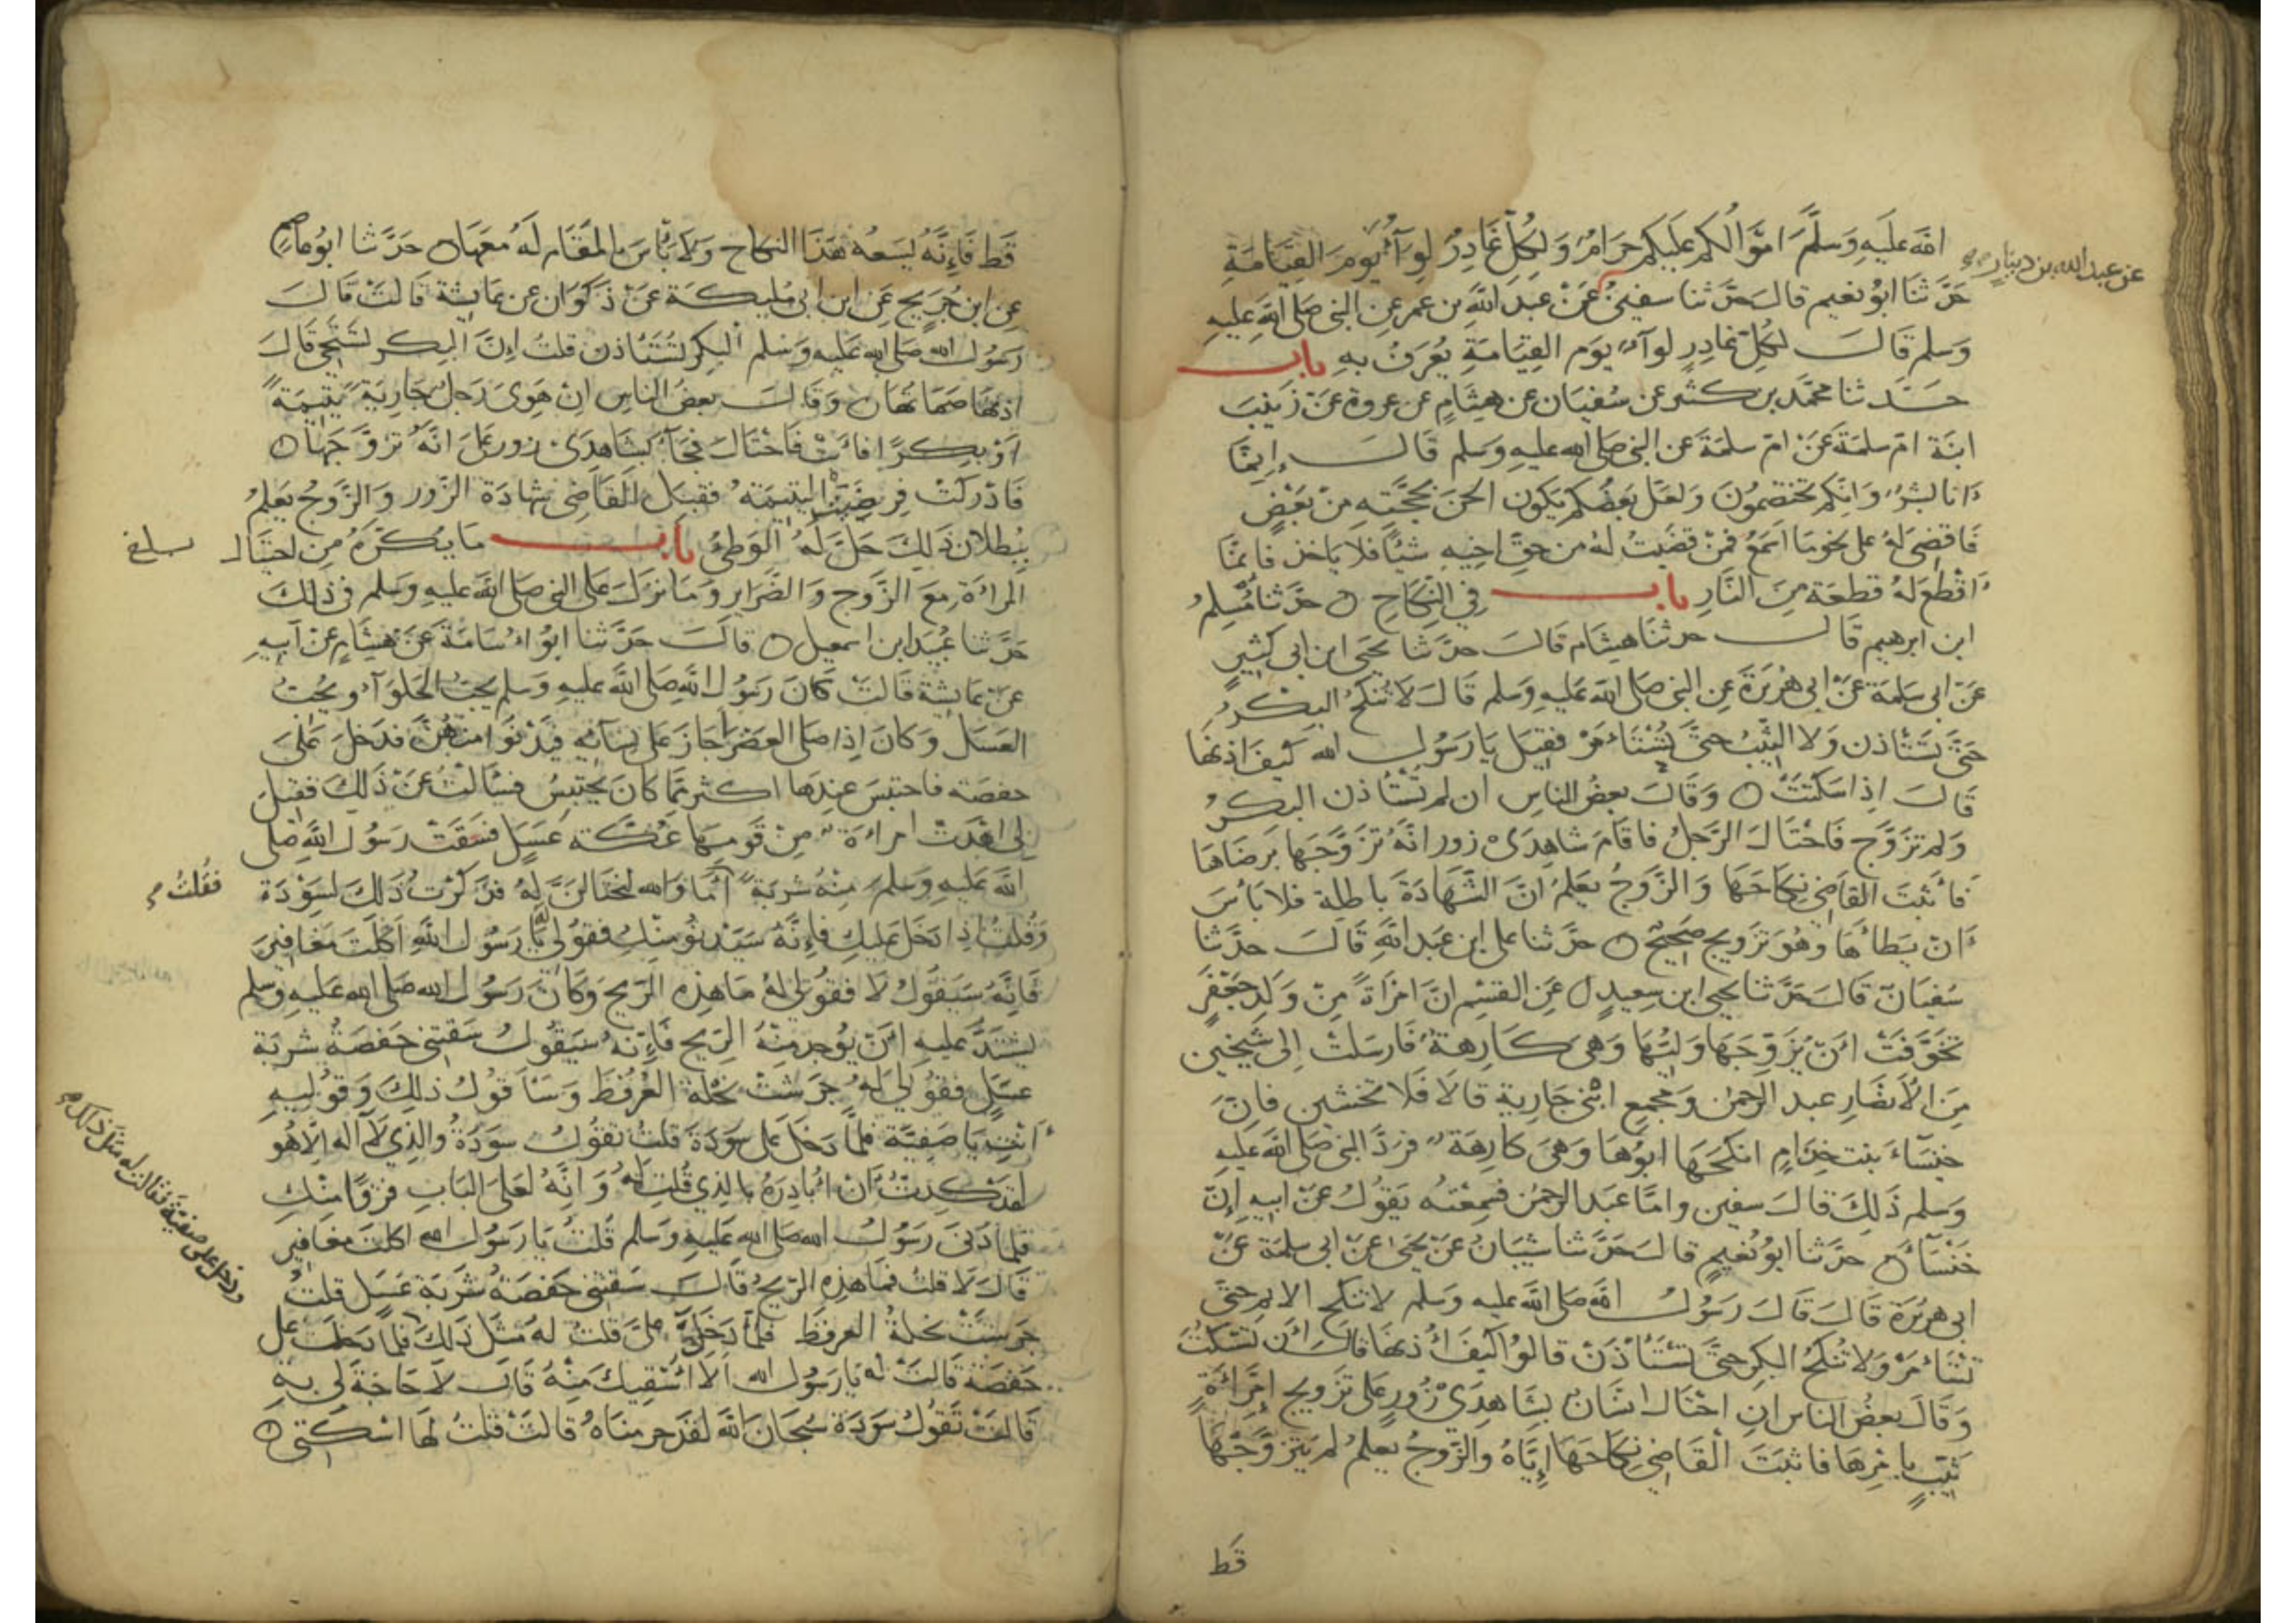 الله عليه وسلم اموالكم عليكم حرام ولكل غادر لوآء يوم القيامة
عن عبد الله بن دينار
حدثنا ابو نعيم قال حدثنا سفين عن عبد الله بن عمر عن النبي صلى الله عليه
وسلم قال لكل غادر لوآء يوم القيامة يعرف به باب
حدثنا محمد بن كثير عن سفيان عن هشام عن عروة عن زينب
ابنة ام سلمة عن ام سلمة عن النبي صلى الله عليه وسلم قال إنما
انا بشر وانكم تختصمون ولعل بعضكم يكون الحن بحجته من بعض
فاقضي له على نحو ما اسمع فمن قضيت له من حق اخيه شيئا فلا ياخذ فانما
اقطع له قطعة من النار باب في النكاح حدثنا مسلم
ابن ابرهيم قال حدثنا هشام قال حدثنا يحيى ابن ابي كثير
عن ابي سلمة عن ابي هريرة عن النبي صلى الله عليه وسلم قال لا تنكح البكر
حتى تستأذن ولا الثيب حتى تستأمر فقيل يا رسول الله كيف اذنها
قال اذا سكتت وقال بعض الناس ان لم تستأذن البكر
ولم تزوج فاحتال الرجل فاقام شاهدى زور انه تزوجها برضاها
فأثبت القاضي نكاحها والزوج يعلم ان الشهادة باطلة فلا بأس
ان يطأها وهو تزويج صحيح حدثنا علي ابن عبد الله قال حدثنا
سفيان قال حدثنا يحيى ابن سعيد عن القسم ان امراة من ولد جعفر
تخوفت ان يزوجها وليها وهي كارهة فارسلت الى شيخين
من الانصار عبد الرحمن ومجمع ابني جارية قالا فلا تخشين فان
خنسآء بنت خذام انكحها ابوها وهي كارهة فرد النبي صلى الله عليه
وسلم ذلك قال سفين واما عبد الرحمن فسمعته يقول عن ابيه إن
خنسآء حدثنا ابو نعيم قال حدثنا شيبان عن يحيى عن ابي سلمة عن
ابي هريرة قال قال رسول الله صلى الله عليه وسلم لا تنكح الايم حتى
تستأمر ولا تنكح البكر حتى تستأذن قالوا كيف أذنها قال أن تسكت
وقال بعض الناس ان احتال انسان بشاهدي زور على تزويج إمرأة
ثيب بامرها فاثبت القاضي نكاحها إياه والزوج يعلم لم يتزوجها
قط
قط فإنه يسعه هذا النكاح ولا بأس بالمقام له معها حدثنا ابو عاصم
عن ابن جريج عن ابن ابي مليكة عن ذكوان عن عايشة قالت قال
رسول الله صلى الله عليه وسلم البكر تستأذن قلت إن البكر تستحي قال
اذنها صماتها وقال بعض الناس ان هوى رجل جارية يتيمة
او بكرا فابت فاحتال فجآء بشاهدى زور على انه تزوجها
فادركت فرضيت اليتيمة فقبل القاضي شهادة الزور والزوج يعلم
ببطلان ذلك حل له الوطئ باب ما يكره من احتيال
المرأة مع الزوج والضراير وما نزل على النبي صلى الله عليه وسلم في ذلك
حدثنا عبيد ابن اسمعيل قال حدثنا ابو اسامة عن هشام عن ابيه
عن عايشة قالت كان رسول الله صلى الله عليه وسلم يحب الحلوآء ويحب
العسل وكان اذا صلى العصر اجاز على نسآئه فيدنوا منهن فدخل على
حفصة فاحتبس عندها اكثر مما كان يحتبس فسالت عن ذلك فقيل
لي اهدت امرأة من قومها عكة عسل فسقت رسول الله صلى
الله عليه وسلم منه شربة أما والله لنحتالن له فذكرت ذلك لسودة
فقلت
وقلت اذا دخل عليك فإنه سيدنو منك فقولي له يا رسول الله اكلت مغافير
فانه سيقول لا فقولي له ما هذه الريح وكان رسول الله صلى الله عليه وسلم
يشتد عليه ان يوجد منه الريح فإنه سيقول سقتني حفصة شربة
عسل فقولي له جرشت نحلة العرفط وسأقول ذلك وقوليه
انت يا صفية فلما دخل على سودة قلت تقول سودة والذي لآ اله الا هو
لقد كدت ان أبادره بالذي قلت له وانه لعلى الباب فرقا منك
فلما دنى رسول الله صلى الله عليه وسلم قلت يا رسول الله اكلت مغافير
قال لا قلت فما هذه الريح قال سقتني حفصة شربة عسل قلت
جرست نحلة العرفط فلما دخل علي قلت له مثل ذلك فلما دخل على
ودخل على صفية فقالت له مثل ذلك
حفصة قالت له يا رسول الله الا اسقيك منه قال لا حاجة لي به
قالت تقول سودة سبحان الله لقد حرمناه قالت قلت لها اسكتي